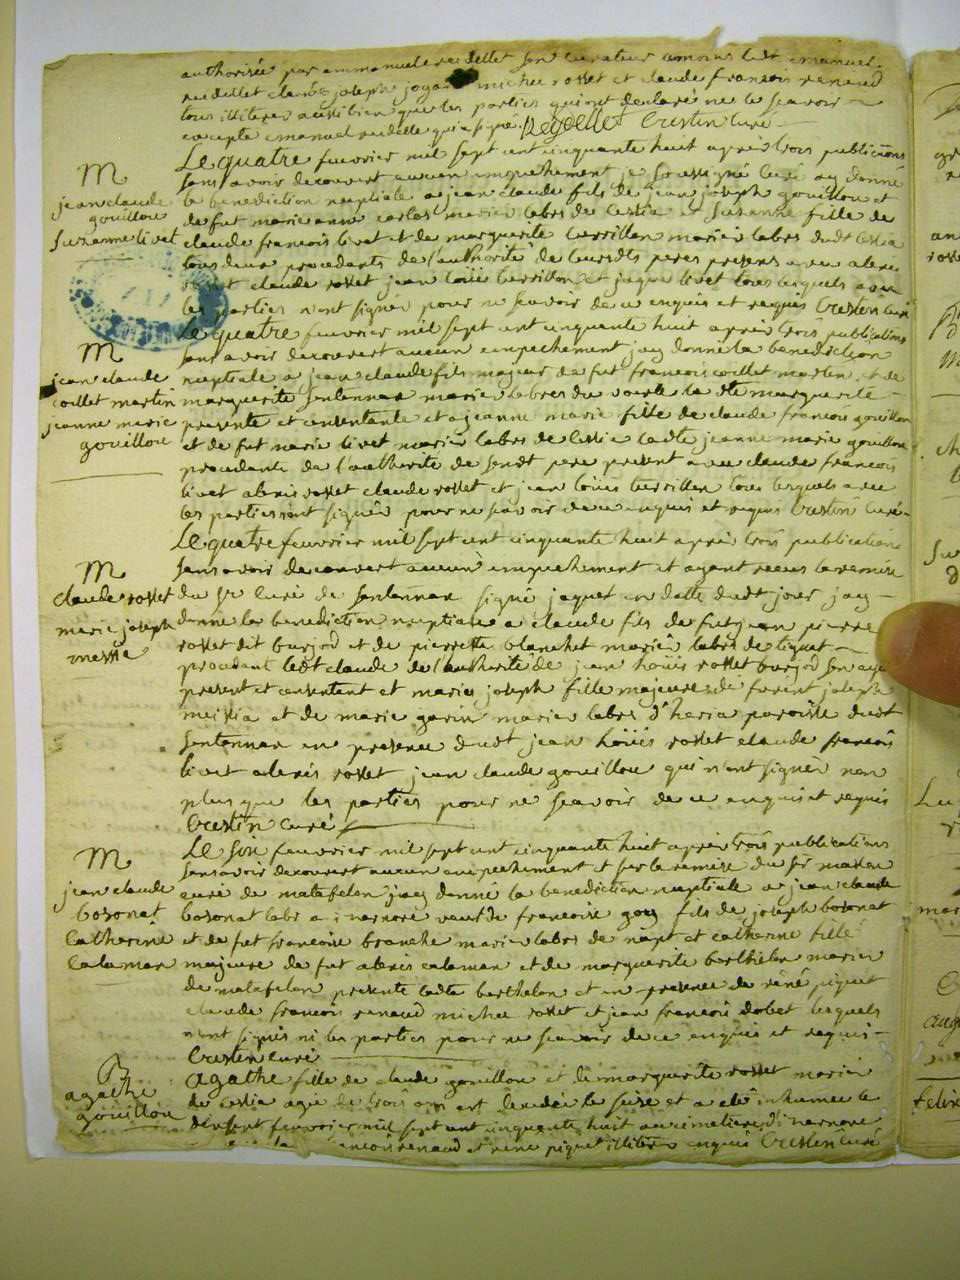 authorisée par emmanuel reidellet son curateur temoins ledt emanuel
reidellet claude joseph joyard michel rosset et claude françois renaud
tous illiteres aussi bien que les parties qui ont declaré ne le scavoir
excepté emanuel reidelle qui a signé. Reydellet Crestin curé
M
jean claude
gouillou
suzanne livet
Le quatre feuvrier mil sept cent cinquante huit après trois publications
sans avoir decouvert aucun empechement je soussigné curé ay donné
la benediction nuptiale a jean claude fils de jean joseph gouillou et
de fut marie anne carlas mariés labrs de cessia et suzanne fille de
claude francois livet et de marguerite berrillon mariés labrs dudt cessia
tous deux procedants de l'authorité de leursdts peres presens avec alexis
rosset claude rosset jean loüis berrillon et jaque livet tous lesquels avec
les parties n'ont signés pour ne scavoir de ce enquis et requis Crestin curé
M
jean claude
coillet martin
jeanne marie
gouillou
Le quatre feuvrier mil sept cent cinquante huit après trois publications
sans avoir decouvert aucun empechement jay donné la benediction
nuptiale a jean claude fils majeur de fut francois coillet martin et de
marguerite sentennar mariés labrs du la dte marguerite
presente et consentante et a jeanne marie fille de claude francois gouillou
et de fut marie livet mariés labrs de cessia ladte jeanne marie gouillou
procedante de l'autherité de sondt pere present avec claude francois
livet alexis rosset claude rosset et jean loüis berrillon tous lesquels avec
les parties n'ont signés pour ne scavoir de ce enquis et requis Crestin curé
M
claude rosset
marie joseph
messia
Le quatre feuvrier mil sept cent cinquante huit après trois publications
sans avoir decouvert aucun empechement et ayant receus la remise
du sr curé de sentennar signé jaquet en datte dudt jour jay
donné la benediction nuptiale a claude fils de fut jean pierre
rosset dit burjod et de pierrette blanchet mariés labrs de liquet
procedant ledt claude de l'autherité de jean loüis rosset burjod son ayeul
present et consentant et marie joseph fille majeure de furent joseph
messia et de marie garin mariés labrs d'heria paroisse dudt
sentennar en presence dudt jean loüis rosset claude francois
livet alexis rosset jean claude gouillou qui n'ont signés non
plus que les parties pour ne scavoir de ce enquis et requis
Crestin curé
M
jean claude
bosonat
Catherine
Calaman
Le six feuvrier mil sept cent cinquante huit après trois publications
sans avoir decouvert aucun empechement et sur la remise du sr
curé de matafelon jay donné la benediction nuptiale a jean claude
bosonat labr a narnore veuf de francoise fils de joseph bosonat
et de fut francoise branche mariés labrs de napt et catherine fille
majeure de fut alexis calaman et de marguerite berthelon mariés
de matafelon presente ladte berthelon et en presence de réné piquet
claude francois renaud michel rosset et jean francois dobet lesquels
n'ont signés ni les parties pour ne scavoir de ce enquis et requis
Crestin curé
B
agathe
gouillou
Agathe fille de claude gouillou et de marguerite rosset mariés
de cessia agée de trois ans est decedée le seise et a eté inhumée le
dixsept feuvrier mil sept cent cinquante huit au cimetiere de narnore
francois renaud et réné piquet illitéres enquis Crestin curé